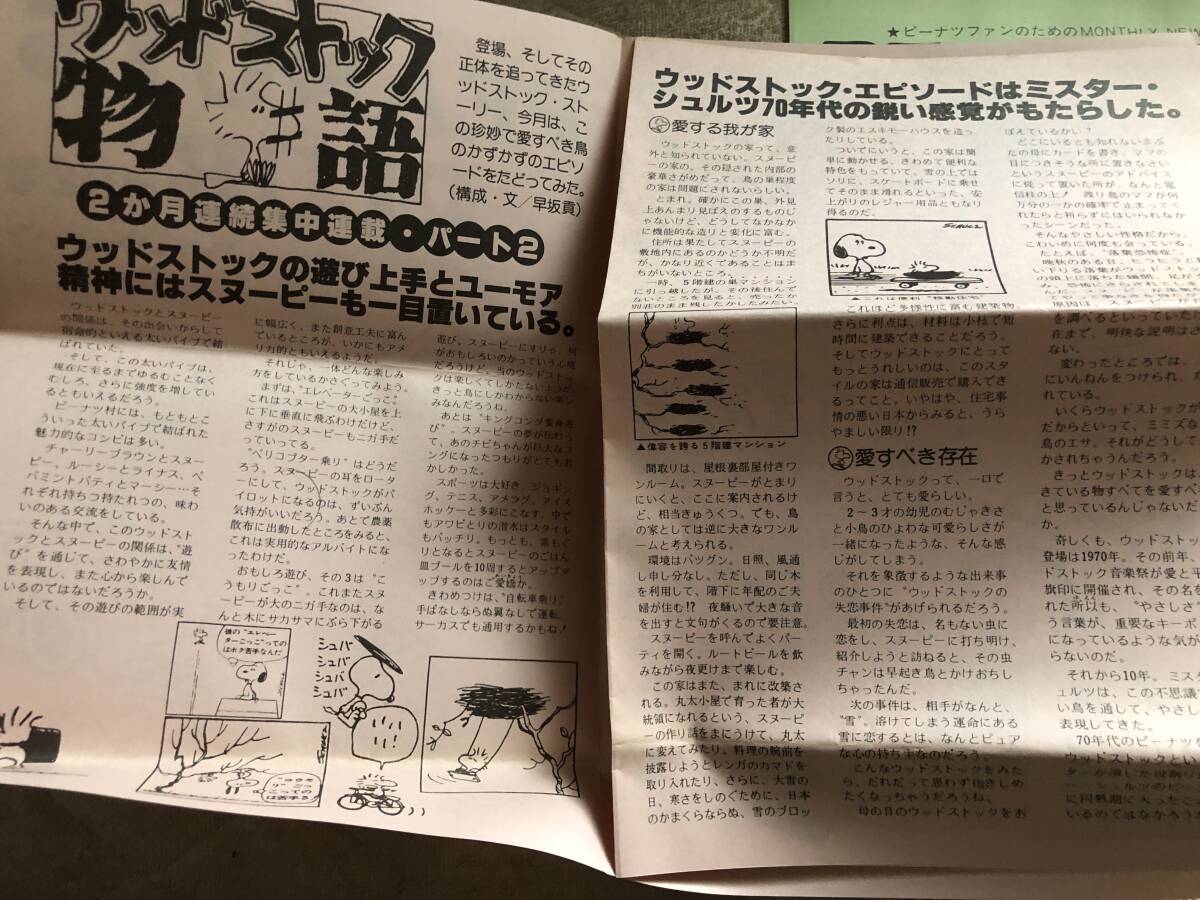 ウッドストック
物語
登場、そしてその
正体を追ってきたウ
ッドストック・スト
ーリー、今月は、こ
の珍妙で愛すべき鳥
のかずかずのエピソ
ードをたどってみた。
(構成・文／早坂貢)
2か月連続集中連載・パート2
ウッドストックの遊び上手とユーモア
精神にはスヌーピーも一目置いている。
ウッドストックとスヌーピー
の関係は、その出会いからして
宿命的といえる太いパイプで結
ばれていた。
そして、この太いパイプは、
現在に至るまでゆるむことなく
むしろ、さらに強度を増してい
るともいえるだろう。
ピーナツ村には、もともとこ
ういった太いパイプで結ばれた
魅力的なコンビは多い。
チャーリーブラウンとスヌー
ピー、ルーシーとライナス、ペ
パミントパティとマーシー…そ
れぞれ持ちつ持たれつの、味わ
いのある交流をしている。
そんな中で、このウッドスト
ックとスヌーピーの関係は、“遊
び”を通じて、さわやかに友情
を表現し、また心から楽しんで
いるのではないだろうか。
そして、その遊びの範囲が実
に幅広く、また創意工夫に富ん
でいるところが、いかにもアメ
リカ的ともいえるようだ。
それじゃ、一体どんな楽しみ
方をしているかさぐってみよう。
まずは、“エレベーターごっこ”。
これはスヌーピーの犬小屋を上
に下に垂直に飛ぶわけだけど、
さすがのスヌーピーもニガ手だ
っていってる。
“ヘリコプター乗り”はどうだ
ろう。スヌーピーの耳をロータ
ーにして、ウッドストックがパ
イロットになるのは、ずいぶん
気持がいいだろう。あとで農薬
散布に出動したところをみると、
これは実用的なアルバイトにな
ったわけだ。
おもしろ遊び、その3は“こ
うもりごっこ”。これまたスヌ
ーピーが大のニガ手なのは、な
んと木にサカサマにぶら下がる
遊び。スヌーピーにすりゃ、何
がおもしろいのかっていう心境
だろうけど、当のウッドストッ
クは楽しくてしかたないようだ。
きっと鳥にしかわからない楽し
みなんだろうね。
あとは“キングコング変身遊
び”。スヌーピーの夢が伝わっ
て、あのチビちゃんが巨大なコ
ングになったつもりがとてもお
かしかった。
スポーツは大好き。ジョギン
グ、テニス、アメラグ、アイス
ホッケーと多彩にこなす。中で
もアワビとりの潜水はスタイル
もバッチリ。もっとも、素もぐ
りとなるとスヌーピーのごはん
皿プールを10周するとアップア
ップするのはご愛嬌か。
きわめつけは、“自転車乗り”。
手ばなしならぬ翼なしで運転。
サーカスでも通用するかもね！
僕の“エレベー
ターごっこ”っての
はボク苦手なんだ
シュバ
シュバ
シュバ
シュバ
いい！
SCHULZ
★ピーナツファンのためのMONTHLY NEW
ウッドストック・エピソードはミスター・
シュルツ70年代の鋭い感覚がもたらした。
愛する我が家
ウッドストックの家って、意
外と知られていない。スヌーピ
ーの家の、その隠された内部の
豪華さがめだって、鳥の巣程度
の家は問題にされないらしい。
とまれ、確かにこの巣、外見
上あんまり見ばえのするものじ
ゃないけど、どうしてなかなか
に機能的な造りと変化に富む。
住所は果たしてスヌーピーの
敷地内にあるのかどうか不明だ
が、かなり近くであることはま
ちがいないところ。
一時、5階建の巣マンション
に引っ越したが、その後住んで
ないところを見ると、売ったか
▲偉容を誇る5階建マンション
間取りは、屋根裏部屋付きワ
ンルーム。スヌーピーがとまり
にいくと、ここに案内されるけ
ど、相当きゅうくつ。でも、鳥
の家としては逆に大きなワンル
ームと考えられる。
環境はバツグン。日照、風通
し申し分なし。ただし、同じ木
を利用して、階下に年配のご夫
婦が住む!? 夜騒いで大きな音
を出すと文句がくるので要注意。
スヌーピーを呼んでよくパー
ティを開く。ルートビールを飲
みながら夜更けまで楽しむ。
この家はまた、まれに改築さ
れる。丸太小屋で育った者が大
統領になれるという、スヌーピ
ーの作り話をまにうけて、丸太
に変えてみたり、料理の腕前を
披露しようとレンガのカマドを
取り入れたり、さらに、大雪の
日、寒さをしのぐために、日本
のかまくらならぬ、雪のブロッ
ク製のエスキモーハウスを造っ
たりしている。
ついでにいうと、この家は簡
単に動かせる、きわめて便利な
特色をもっていて、雪の上では
ソリに、スケートボードに乗せ
てそのまま滑れるといった、安
上がりのレジャー用品ともなり
得るのだ。
SCHULZ
▲これは便利“移動住宅”
これほど多様性に富む建築物、
さらに利点は、材料は小枝で短
時間に建築できることだろう。
そしてウッドストックにとって
もっともうれしいのは、このスタ
イルの家は通信販売で購入でき
るってこと。いやはや、住宅事
情の悪い日本からみると、うら
やましい限り!?
愛すべき存在
ウッドストックって、一口で
言うと、とても愛らしい。
2～3才の幼児のむじゃきさ
と小鳥のひよわな可愛らしさが
一緒になったような、そんな感
じがしてしまう。
それを象徴するような出来事
のひとつに“ウッドストックの
失恋事件”があげられるだろう。
最初の失恋は、名もない虫に
恋をし、スヌーピーに打ち明け、
紹介しようと訪ねると、その虫
チャンは早起き鳥とかけおちし
ちゃったんだ。
次の事件は、相手がなんと、
“雪”。溶けてしまう運命にある
雪に恋するとは、なんとピュア
な心の持ち主なのだろう。
こんなウッドストックをみた
ら、だれだって思わず抱きしめ
たくなっちゃうだろうね。
母の日のウッドストックをお
ぼえているかい？
どこにいるとも知れないまぶ
たの母にカードを書き、ママの
目につきそうな所に置きなさい
というスヌーピーのアドバイス
に従って置いた所が、なんと電
信柱の上！ 渡り鳥のママが何
万分の一かの確率で止まってく
れたらと祈らずにはいられなか
ったシーンだった。
そんなやさしい性格だから、
こわいめに何度も会っている。
を調べるといっていた
在まで、明快な説明は
ない。
変わったところでは、
にいんねんをつけられ、た
いくらウッドストックが
だからといって、ミミズな
鳥のエサ。それがどうして
かされちゃうんだろう。
きっとウッドストックは
きている物すべてを愛すべ
と思っているんじゃないだ
か。
奇しくも、ウッドストッ
登場は1970年。その前年、
ドストック音楽祭が愛と平
旗印に開催され、その名を
れた所以も、“やさしさ
う言葉が、重要なキーポ
になっているような気が
らないのだ。
それから10年。ミス
ュルツは、この不思議
い鳥を通して、やさし
表現してきた。
70年代のピーナツを
ウッドストックとい